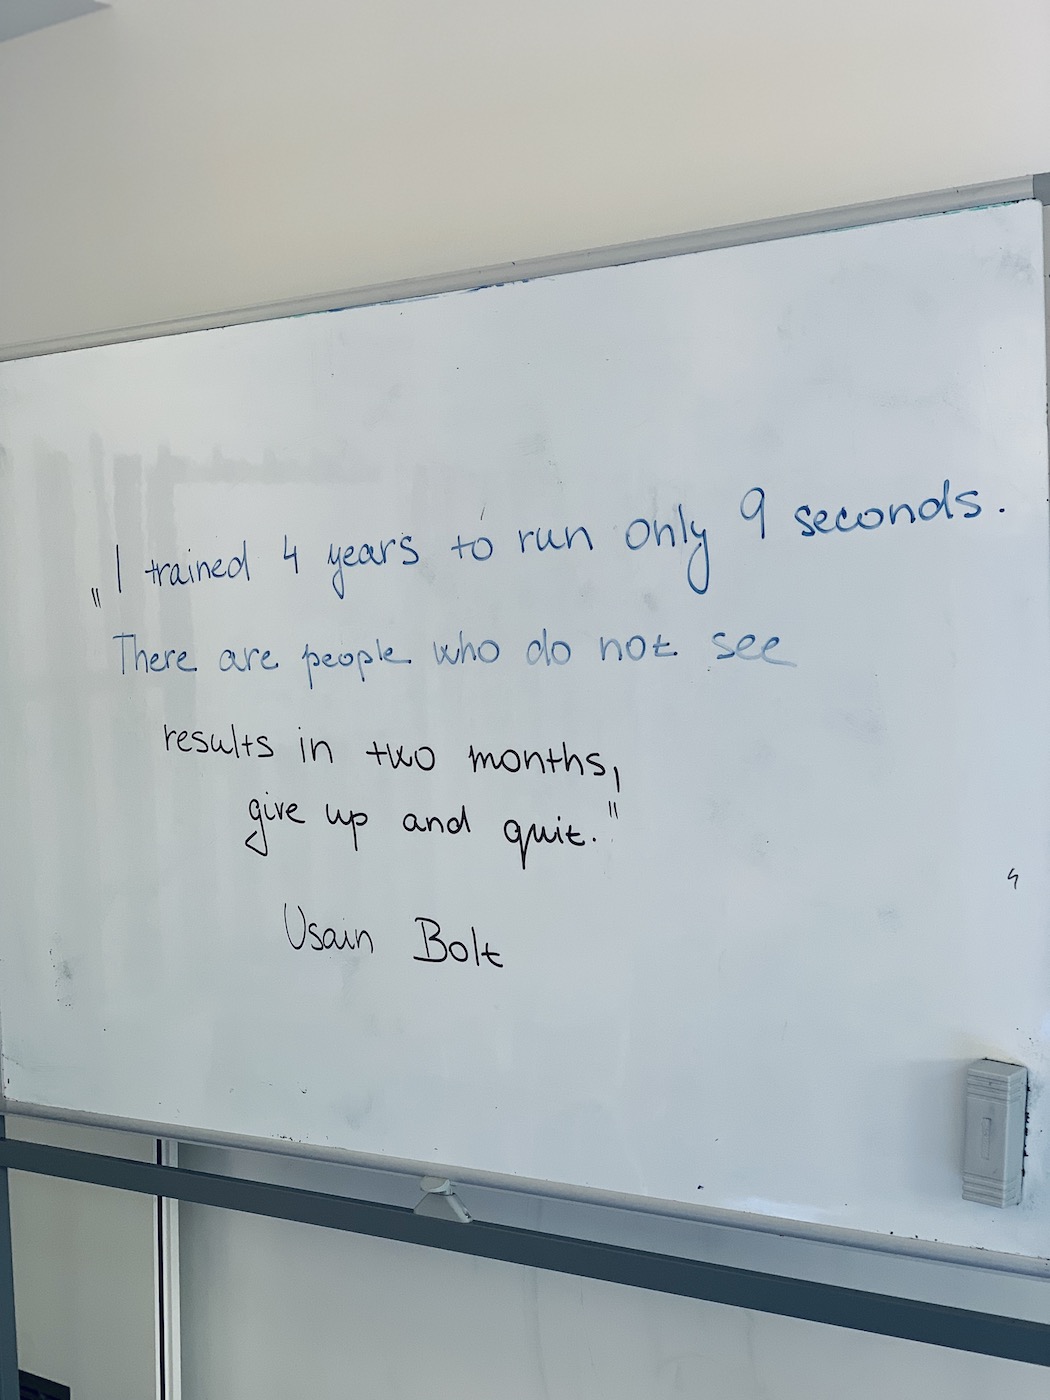 „I trained 4 years to run only 9 seconds.
There are people who do not see
results in two months,
give up and quit."
Usain Bolt